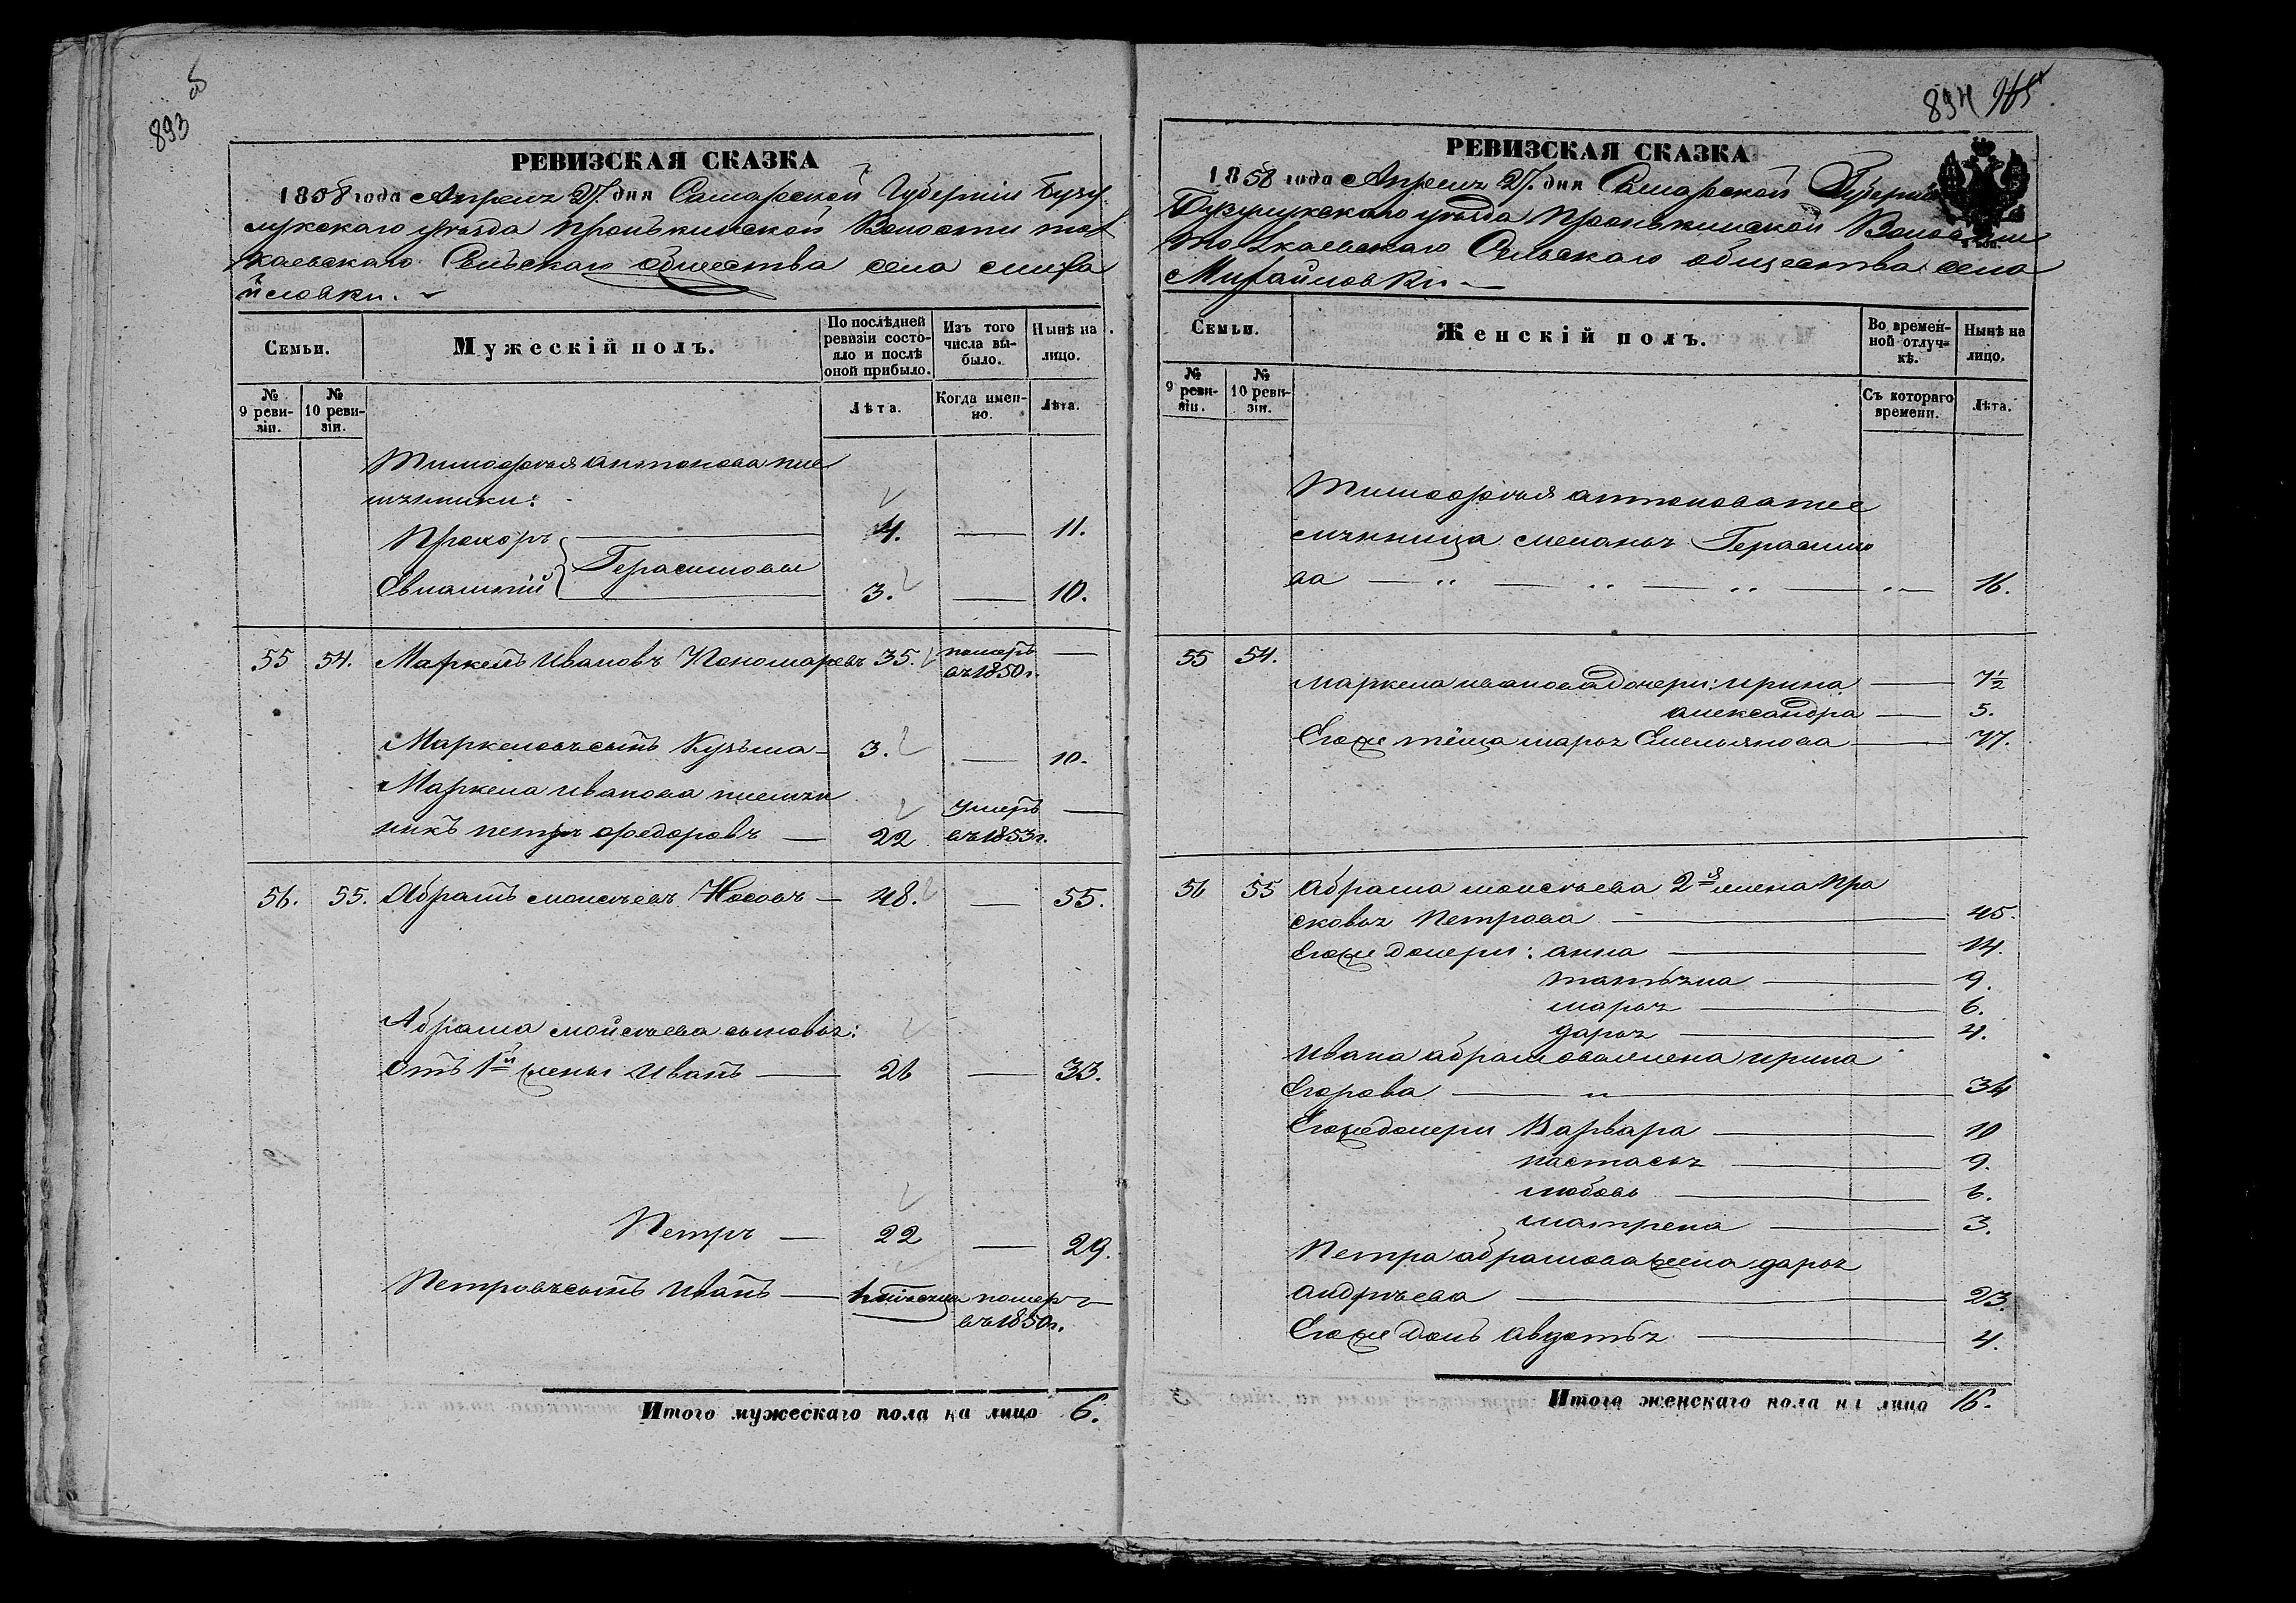 893
894
РЕВИЗСКАЯ СКАЗКА
1858 года Апреля 27. дня Самарской Губерніи Бузу
лукскаго уѣзда Пронькинской Волости ток
каевскаго Сельскаго общества села миха
йловки.
Семьи.
Мужескій полъ.
По послѣдней ревизіи состо-
яло и послѣ оной прибыло.
Изъ того числа вы-
было.
Нынѣ на лицо.
№ 9 реви-
зіи.
№ 10 реви-
зіи.
Лѣта.
Когда имен-
но.
Лѣта.
Тимофея антонова пле
мѣники:
Прохоръ — 4. — 11.
Герасимовы
Евлампій 3. — 10.
55 54. Маркелъ Ивановъ Пономаревъ 35. померъ —
въ 1850 г.
Маркеловъ сынъ Кузьма — 3. — 10.
Маркела иванова племян
никъ петръ федоровъ — 22 умеръ —
въ 1853 г.
56. 55. Абрамъ моисѣевъ Носовъ — 48. — 55.
Абрама мойсѣева сыновья:
Отъ 1й жены Иванъ — 26 — 33.
Петръ — 22 — 29.
Петровъ сынъ Иванъ — померъ —
въ 1850 г.
Итого мужескаго пола на лицо 6.
РЕВИЗСКАЯ СКАЗКА
1858 года Апреля 27. дня Самарской Губерніи
Бузулукскаго уѣзда Пронькинской Волости
Токкаевскаго Сельскаго общества села
Михайловки —
Семьи.
Женскій полъ.
Во времен-
ной отлуч-
кѣ.
Нынѣ на лицо.
№ 9 реви-
зіи.
№ 10 реви-
зіи.
Съ котораго времени.
Лѣта.
Тимофея антонова пле
мянница меланья Герасимо
ва — 16.
55 54.
Маркела иванова дочери: ирина — 7½
александра — 5.
Егоже тёща марья Емельянова — 77.
56 55 Абрама моисѣева 2я жена Пра
сковья Петрова — 45.
Егоже дочери: анна — 14.
татьяна — 9.
марья — 6.
дарья — 4.
Ивана абрамова жена ирина
Егорова — 34
Егоже дочери Варвара — 10
настасья — 9.
любовь — 6.
матрена — 3.
Петра абрамова жена дарья
андрѣева — 23.
Егоже дочь авдотья — 4.
Итого женскаго пола на лицо 16.